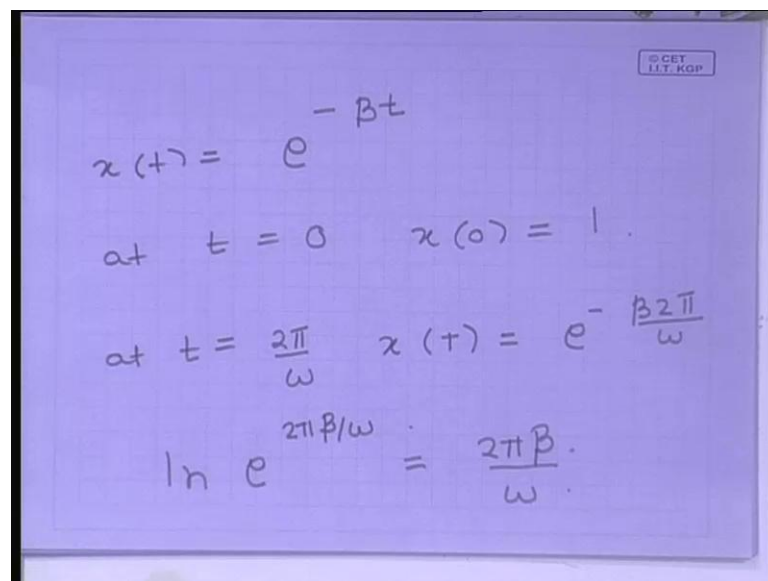 © CET
I.I.T. KGP
x(t) = e^{-βt}
at t = 0 x(0) = 1.
at t = 2π/ω x(T) = e^{-β2π/ω}
ln e^{2πβ/ω} = 2πβ/ω.